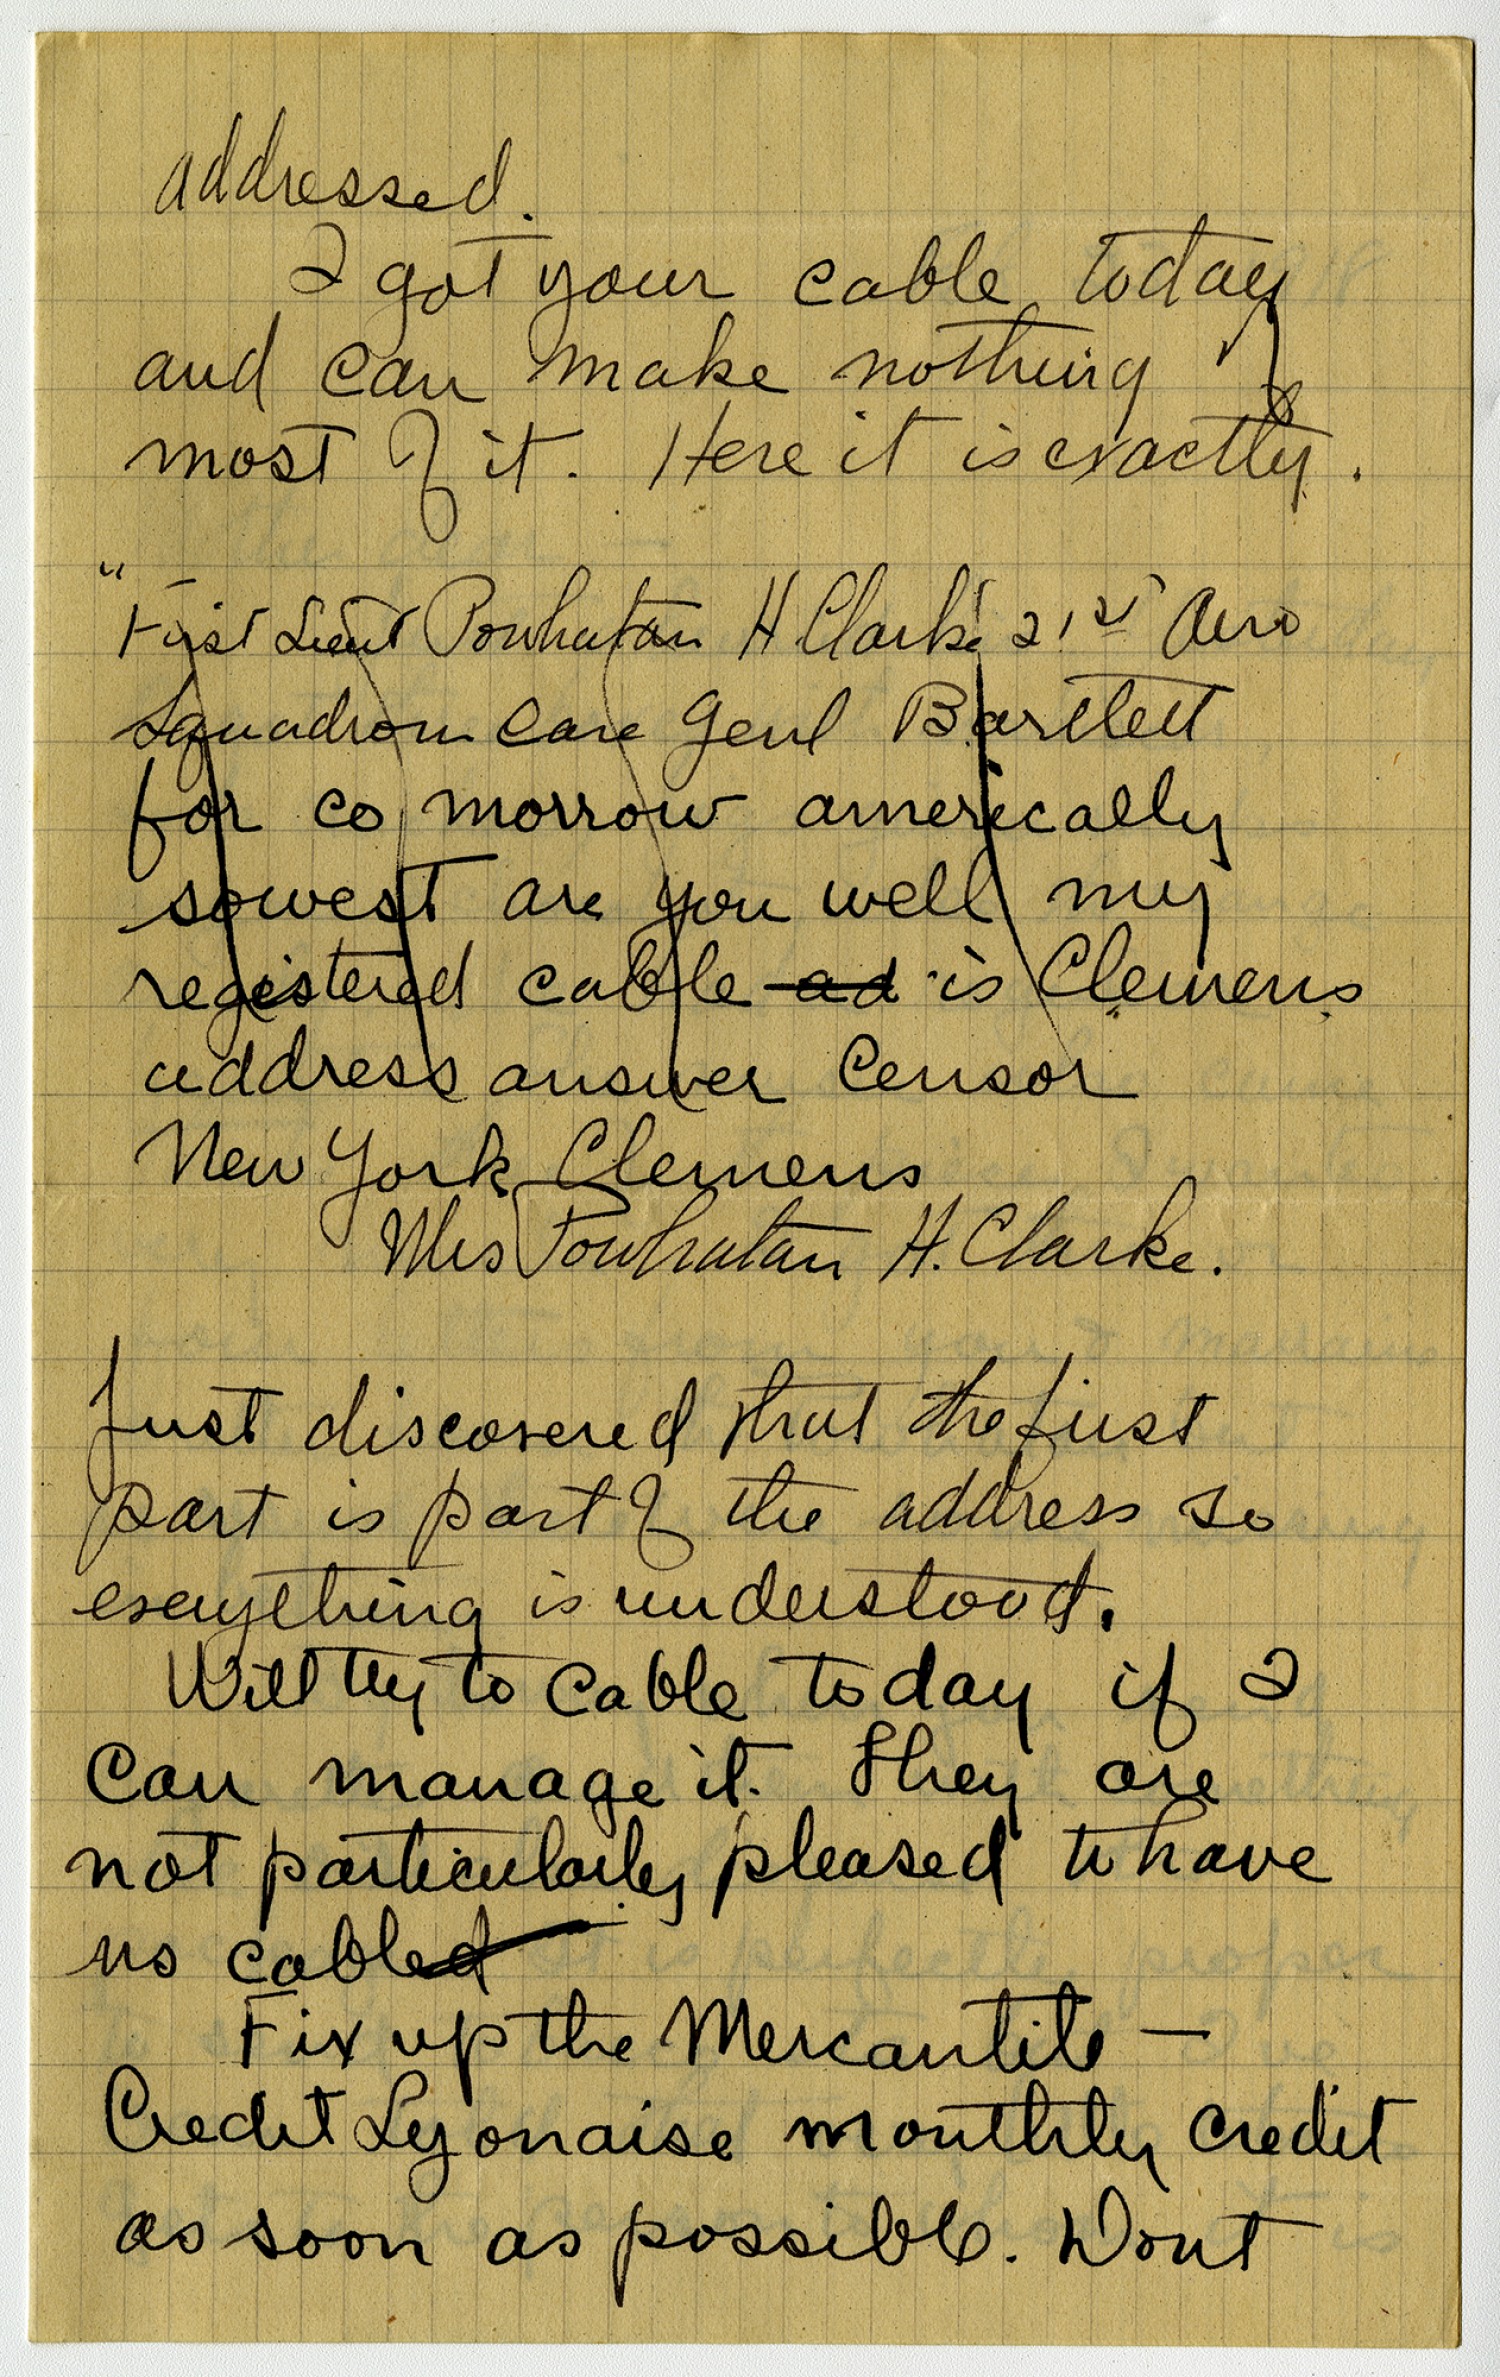 addressed.
I got your cable today
and can make nothing of
most of it. Here it is exactly.
"First Lieut Powhatan H Clarke 21st Aero
Squadron Care Genl Bartlett
for co morrow americally
sowest are you well my
registered cable ad is Clemens
address answer Censor
New York Clemens
Mrs Powhatan H. Clarke.
Just discovered that the first
part is part of the address so
everything is understood.
Will try to cable today if I
can manage it. They are
not particularly pleased to have
us cabled
Fix up the Mercantile —
Credit Lyonaise monthly credit
as soon as possible. Wont